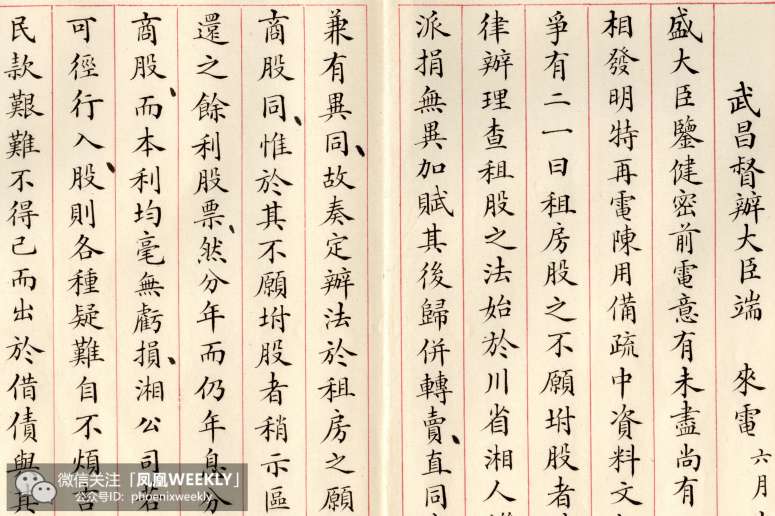 武昌督辦大臣端　來電　六月
盛大臣鑒健密前電意有未盡尚有
相發明特再電陳用備疏中資料文
爭有二一曰租房股之不願坿股者
律辦理查租股之法始於川省湘人
派捐無異加賦其後歸併轉賣、直同
兼有異同、故奏定辦法於租房之願
商股同、惟於其不願坿股者稍示區
還之餘利股票、然分年而仍年息分
商股、而本利均毫無虧損、湘公司若
可徑行入、股則各種疑難自不煩言
民款艱難不得已而出於借債與其
微信关注「鳳凰WEEKLY」
公众号ID: phoenixweekly